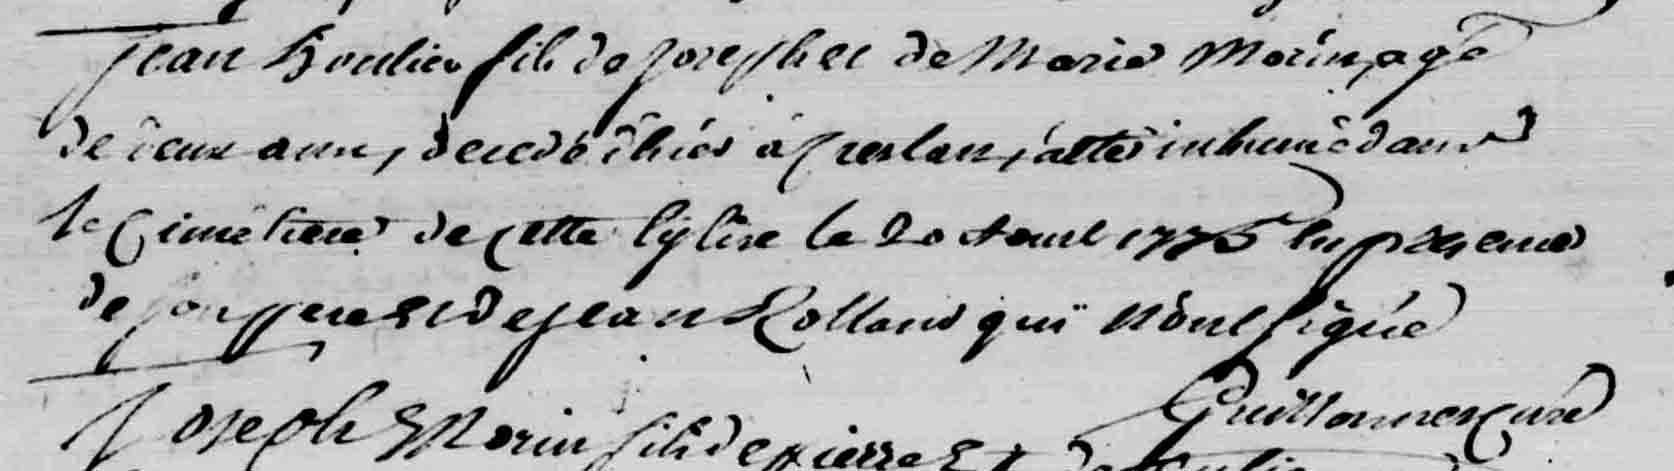 Jean Boulieu fils de Joseph et de Marie Morin, agé
de deux ans, decedé hier à Freslan, a été inhumé dans
le Cimetiere de cette Eglise le 20 Aoust 1775 En presence
de son pere Et de Jean Rolland qui n'ont signé
Guillaume Curé
Joseph Morin fils de pierre Et